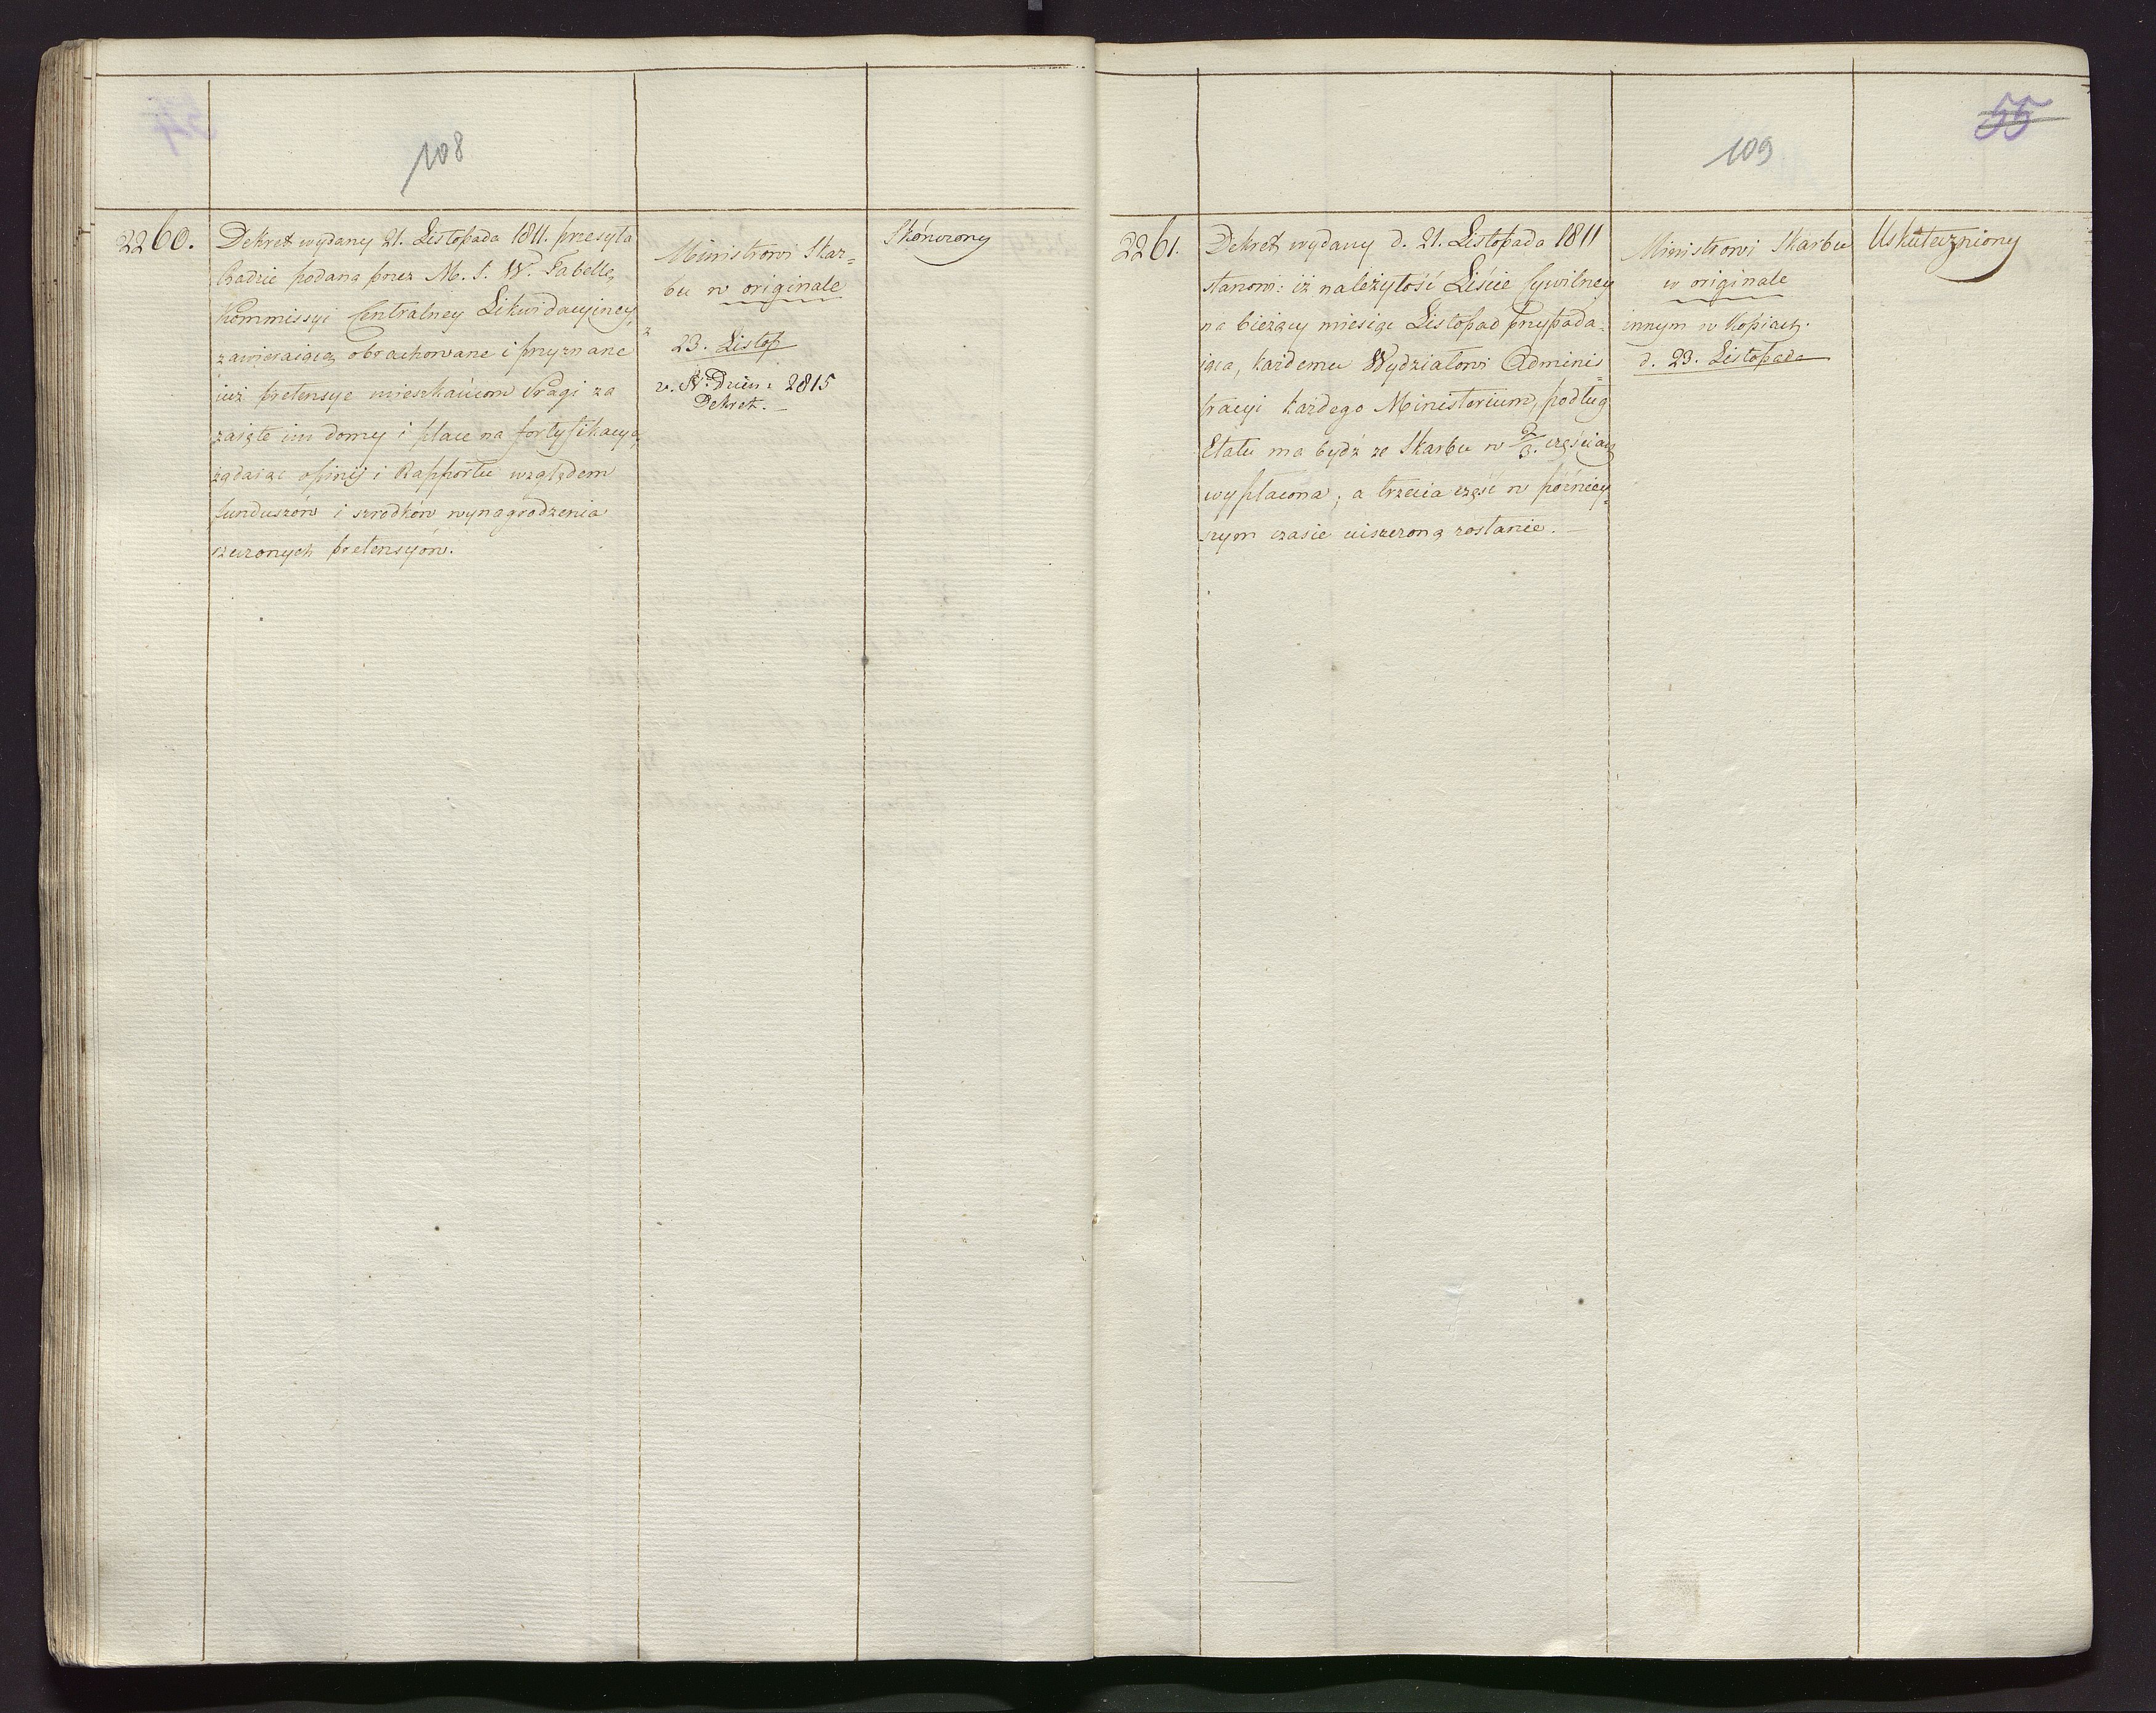 108
2260.
Dekret wydany 21. Listopada 1811. przesyła
Radzie podaną przez M. S. W. Tabellę
Kommissyi Centralney Likwidacyiney,
zawieraiącą obrachowane i przyznane
iuż pretensye mieszkańcom Pragi za
zaięte im domy i place na fortyfikacyą,
żądaiąc opinij i Rapportu względem
funduszów i szrodków wynagrodzenia
rzeczonych pretensyów.
Ministrowi Skar=
bu w originale
23. Listop
v. N. Dzien: 2815
Dekret. —
Skończony
55
109
2261.
Dekret wydany d. 21. Listopada 1811
stanowi: iż należytość Liście Cywilney
na bieżący miesiąc Listopad przypada=
iąca, każdemu Wydziałowi Adminis=
tracyi każdego Ministerium, podług
Etatu ma bydź ze Skarbu w 2/3. częściach
wypłacona; a trzecia część w późniey=
szym czasie uiszczoną zostanie. —
Ministrowi Skarbu
w originale
innym w Kopiach.
d. 23. Listopada
Uskuteczniony